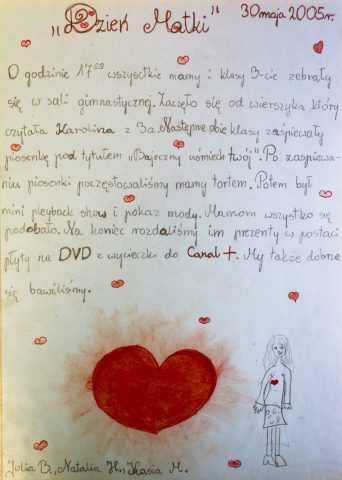 "Dzień Matki" 30 maja 2005r.
O godzinie 17⁰⁰ wszystkie mamy i klasy 3-cie zebrały
się w sali gimnastycznej. Zaczęło się od wierszyka, który
czytała Karolina z 3a. Następnie obie klasy zaśpiewały
piosenkę pod tytułem „Bajeczny uśmiech twój". Po zaśpiewa-
niu piosenki poczęstowaliśmy mamy tortem. Potem był
mini pleyback show i pokaz mody. Mamom wszystko się
podobało. Na koniec rozdaliśmy im prezenty w postaci
płyty na DVD z wycieczki do Canal+. My także dobrze
się bawiliśmy.
Julia B., Natalia H., Kasia M.